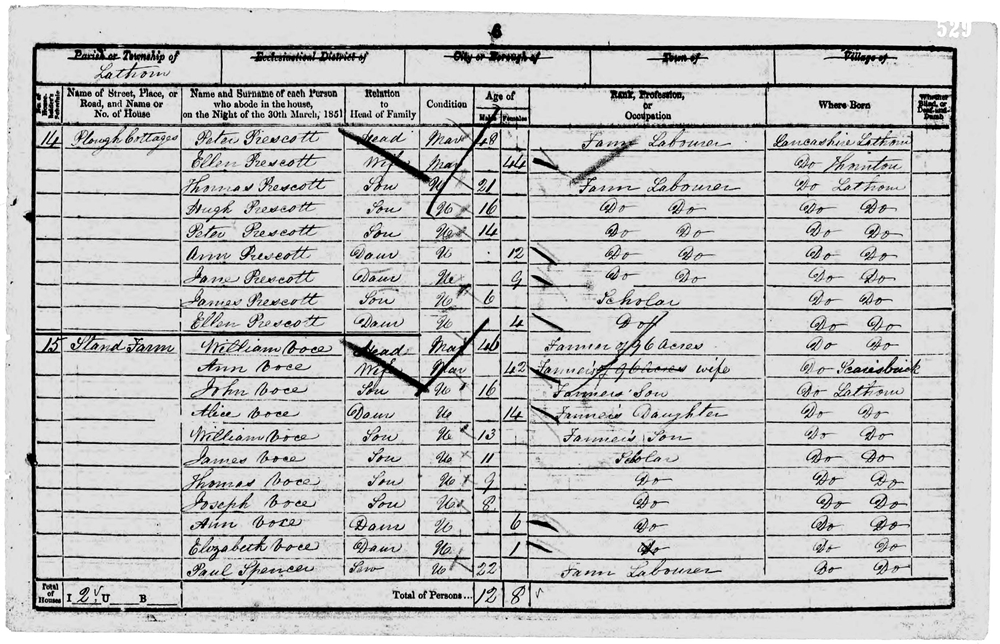 529
6
Parish or Township of Ecclesiastical District of City or Borough of Town of Village of
Lathom
No. of House-holder's Schedule Name of Street, Place, or Road, and Name or No. of House Name and Surname of each Person who abode in the house, on the Night of the 30th March, 1851 Relation to Head of Family Condition Age of Males Females Rank, Profession, or Occupation Where Born Whether Blind, or Deaf-and-Dumb
14 Plough Cottages Peter Prescott Head Mar 48 Farm Labourer Lancashire Lathom
Ellen Prescott Wife Mar 44 Do Thornton
Thomas Prescott Son U 21 Farm Labourer Do Lathom
Hugh Prescott Son U 16 Do Do Do Do
Peter Prescott Son U 14 Do Do Do Do
Ann Prescott Daur U 12 Do Do Do Do
Jane Prescott Daur U 9 Do Do Do Do
James Prescott Son U 6 Scholar Do Do
Ellen Prescott Daur U 4 Do Do Do
15 Stand Farm William Voce Head Mar 46 Farmer of 96 Acres Do Do
Ann Voce Wife Mar 42 Farmer's of 96 Acres wife Do Scarisbrick
John Voce Son U 16 Farmer's Son Do Lathom
Alice Voce Daur U 14 Farmer's Daughter Do Do
William Voce Son U 13 Farmer's Son Do Do
James Voce Son U 11 Scholar Do Do
Thomas Voce Son U 9 Do Do Do
Joseph Voce Son U 8 Do Do Do
Ann Voce Daur U 6 Do Do Do
Elizabeth Voce Daur U 1 Do Do Do
Paul Spencer Serv U 22 Farm Labourer Do Do
Total of Houses I 2 U B Total of Persons... 12 8